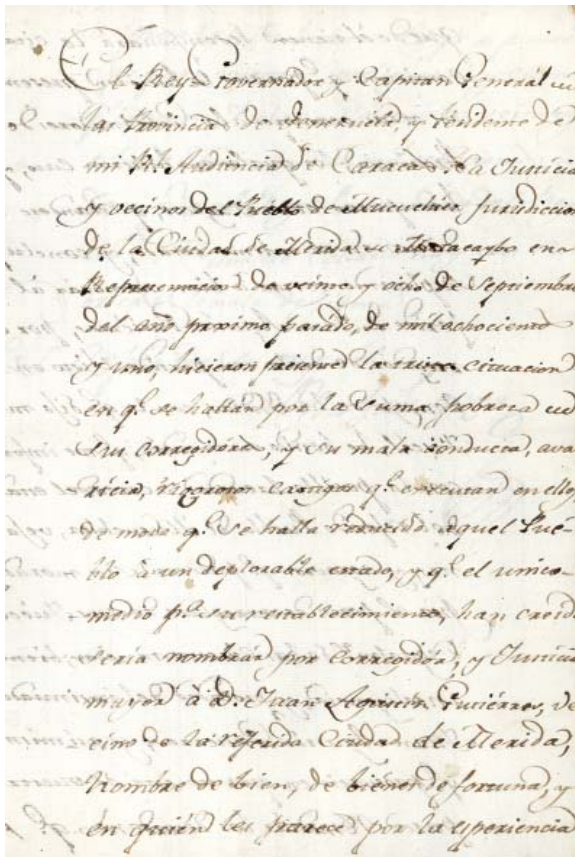 El Rey Governador y Capitan General de
las Provincias de Venezuela, y Presidente de
mi Rl. Audiencia de Caracas. La Justicia
y vecinos del Pueblo de Mucuchies Jurisdiccion
de la Ciudad de Merida de Maracaybo en
Representacion de veinte y ocho de Septiembre
del año proximo pasado, de mil ochocientos
y uno, hicieron presente la triste cituacion
en qe. se hallan por la suma pobreza de
sus corregidores, y su mala conducta, ava
ricia, rigorosos castigos qe. executan en ellos,
de modo qe. se halla reducido aquel Pue-
blo a un deplorable estado, y qe. el unico
medio pa. su restablecimiento, han creido
seria nombrar por corregidor, y Justicia
mayor à Dn. Juan Agustin Gutiérres, ve
cino de la referida Ciudad de Merida,
hombre de bien, de bienes de fortuna, y
en quién les parece por la esperiencia